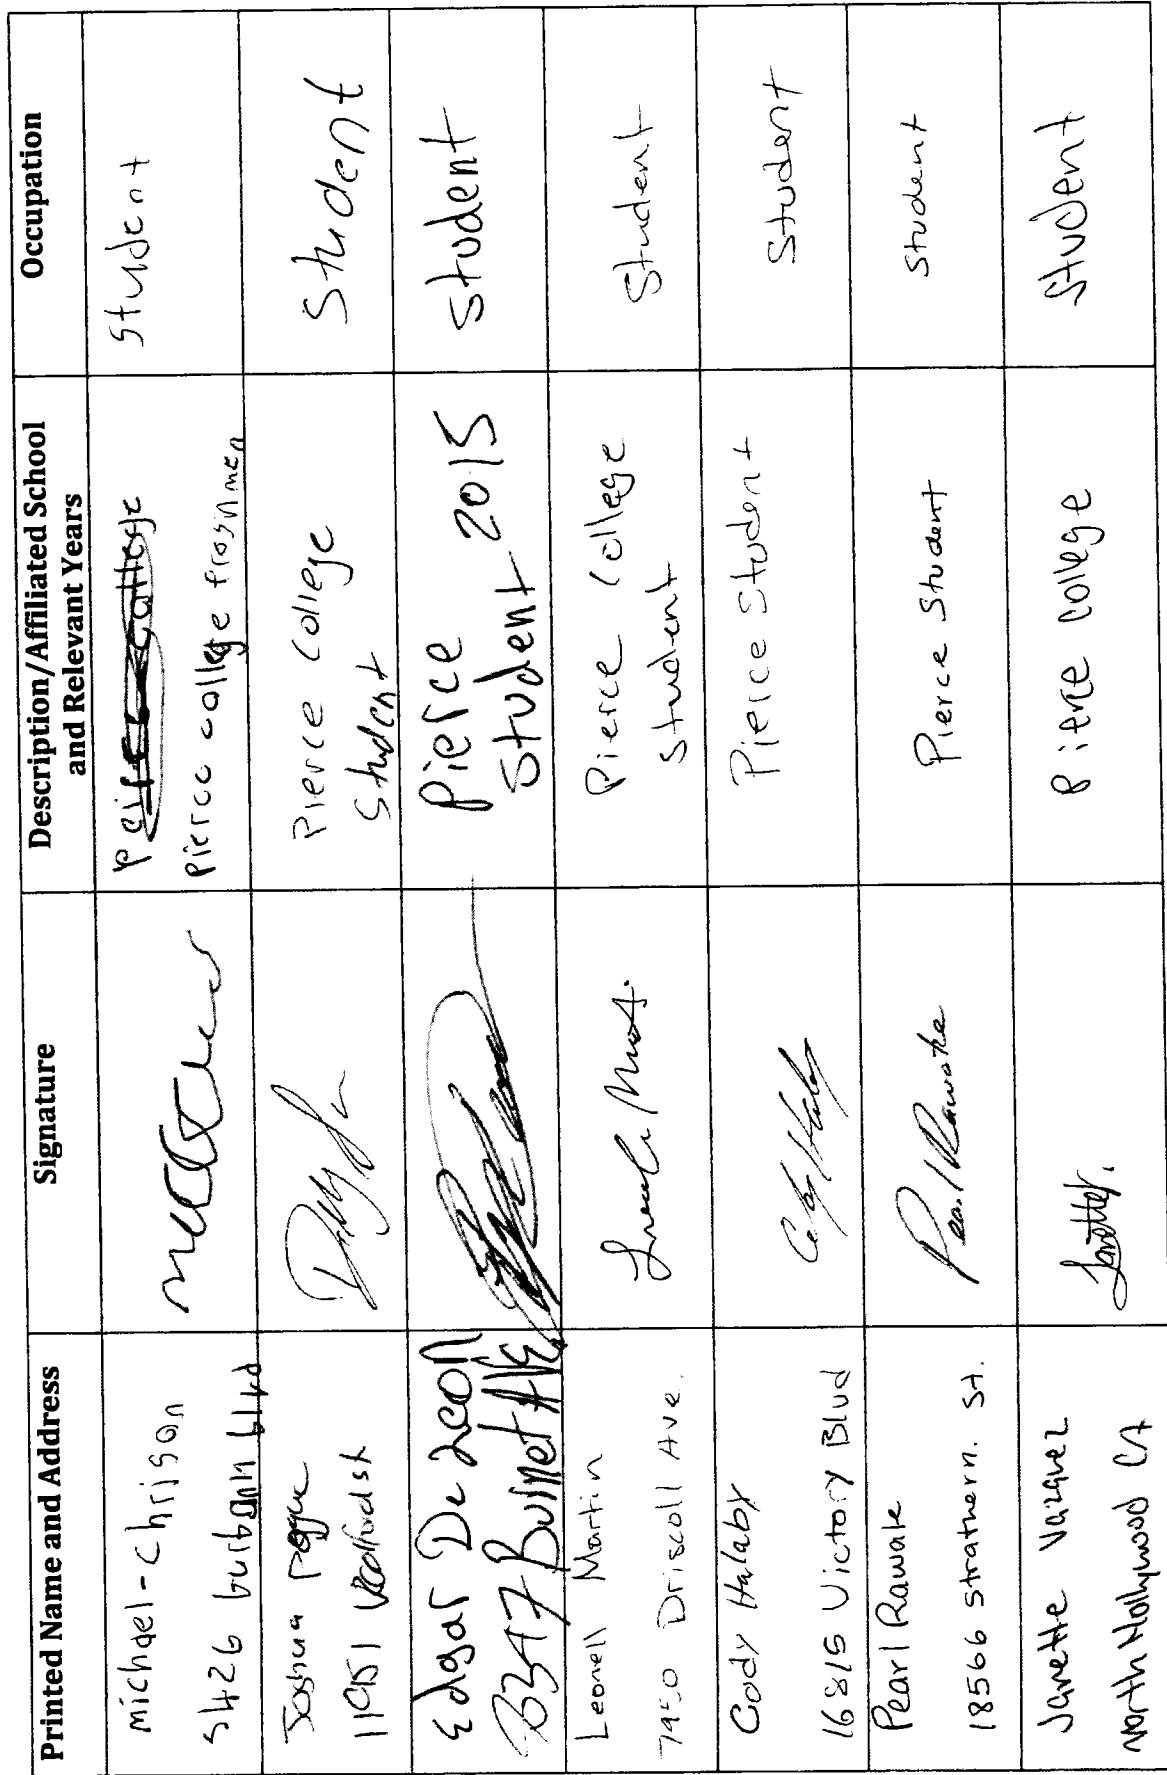 Printed Name and Address
Signature
Description/Affiliated School
and Relevant Years
Occupation
michael-Chrison
5426 burbank blvd
Pierce college
student
Joshua
Pierce College
Student
Student
Edgar De Leon
Pierce
Student 2015
Student
Leonell Martin
Driscoll Ave.
Pierce College
Student
Student
Cody Halaby
16815 Victory Blvd
Pierce Student
Student
Pearl Rawale
18566 Strathern. St.
Pearl Rawale
Pierce Student
Student
Janette Vazquez
North Hollywood CA
Pierce College
Student